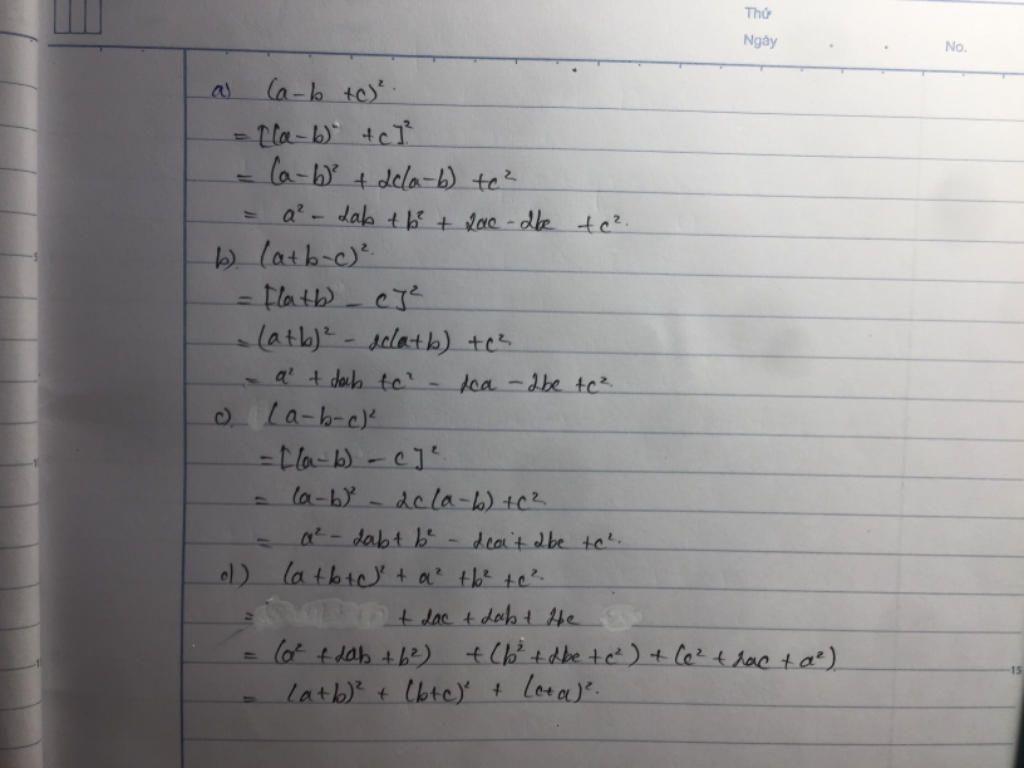 Thứ
Ngày . . No.
a) (a-b +c)².
= [(a-b)² +c]²
= (a-b)² + 2c(a-b) +c²
= a² - 2ab + b² + 2ac - 2bc +c².
b) (a+b-c)².
= [(a+b) - c]²
= (a+b)² - 2c(a+b) +c².
= a² + 2ab +c² - 2ca - 2bc +c².
c) (a-b-c)²
= [(a-b) - c]².
= (a-b)² - 2c(a-b) +c².
= a² - 2ab + b² - 2ca + 2bc +c².
d) (a+b+c)² + a² +b² +c².
= + 2ac + 2ab + 2bc
= (a² + 2ab + b²) + (b² + 2bc + c²) + (c² + 2ac + a²)
15
= (a+b)² + (b+c)² + (c+a)².